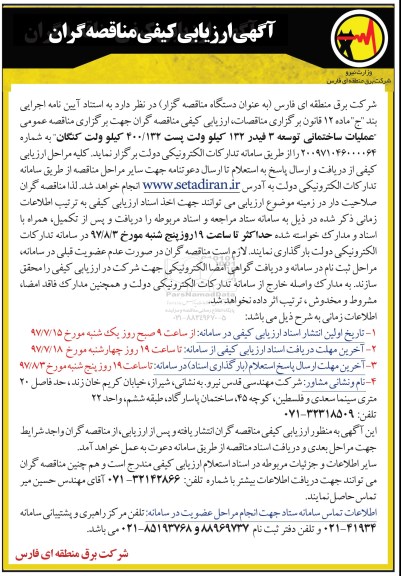 آگهی ارزیابی کیفی مناقصه گران
وزارت نیرو
شرکت برق منطقه ای فارس
شرکت برق منطقه ای فارس (به عنوان دستگاه مناقصه گزار) در نظر دارد به استناد آیین نامه اجرایی
بند "ج" ماده ۱۲ قانون برگزاری مناقصات، ارزیابی کیفی مناقصه گران جهت برگزاری مناقصه عمومی
"عملیات ساختمانی توسعه ۳ فیدر ۱۳۲ کیلو ولت پست ۴۰۰/۱۳۲ کیلو ولت کنگان" به شماره
۲۰۰۹۷۱۰۴۶۰۰۰۰۶۴ را از طریق سامانه تدارکات الکترونیکی دولت برگزار نماید. کلیه مراحل ارزیابی
کیفی از دریافت و ارسال پاسخ به استعلام تا ارسال دعوتنامه جهت سایر مراحل مناقصه از طریق سامانه
تدارکات الکترونیکی دولت به آدرس www.setadiran.ir انجام خواهد شد. لذا مناقصه گران
صلاحیت دار در زمینه موضوع ارزیابی می توانند جهت اخذ اسناد ارزیابی کیفی به ترتیب اطلاعات
زمانی ذکر شده در ذیل به سامانه ستاد مراجعه و اسناد مربوطه را دریافت و پس از تکمیل، همراه با
اسناد و مدارک خواسته شده حداکثر تا ساعت ۱۹ روز پنج شنبه مورخ ۹۷/۸/۳ در سامانه تدارکات
الکترونیکی دولت بارگذاری نمایند. لازم است مناقصه گران در صورت عدم عضویت قبلی در سامانه،
مراحل ثبت نام در سامانه و دریافت گواهی امضا الکترونیکی جهت شرکت در ارزیابی کیفی را محقق
سازند. به مدارک واصله خارج از سامانه تدارکات الکترونیکی دولت و همچنین مدارک فاقد امضا،
مشروط و مخدوش، ترتیب اثر داده نخواهد شد.
اطلاعات زمانی به شرح ذیل می باشد:
۱- تاریخ اولین انتشار اسناد ارزیابی کیفی در سامانه: از ساعت ۹ صبح روز یک شنبه مورخ ۹۷/۷/۱۵
۲- آخرین مهلت دریافت اسناد ارزیابی کیفی از سامانه: تا ساعت ۱۹ روز چهارشنبه مورخ ۹۷/۷/۱۸
۳- آخرین مهلت ارسال پاسخ استعلام (بارگذاری اسناد) در سامانه: تا ساعت ۱۹ روز پنج شنبه مورخ ۹۷/۸/۳
۴- نام و نشانی مشاور: شرکت مهندسی قدس نیرو. به نشانی، شیراز، خیابان کریم خان زند، حد فاصل ۲۰
متری سینما سعدی و فلسطین، کوچه ۴۵، ساختمان پاسارگاد، طبقه ششم، واحد ۲۲
تلفن: ۳۲۳۱۸۵۰۹-۰۷۱
این آگهی به منظور ارزیابی کیفی مناقصه گران انتشار یافته و پس از ارزیابی، از مناقصه گران واجد شرایط
جهت مراحل بعدی و دریافت اسناد مناقصه از طریق سامانه دعوت به عمل خواهد آمد.
سایر اطلاعات و جزئیات مربوطه در اسناد استعلام ارزیابی کیفی مندرج است و هم چنین مناقصه گران
می توانند جهت دریافت اطلاعات بیشتر با شماره تلفن: ۳۲۱۴۲۸۶۶-۰۷۱ آقای مهندس حسین میر
تماس حاصل نمایند.
اطلاعات تماس سامانه ستاد جهت انجام مراحل عضویت در سامانه: تلفن مرکز راهبری و پشتیبانی سامانه
۴۱۹۳۴-۰۲۱ و تلفن دفتر ثبت نام ۸۸۹۶۹۷۳۷ و ۸۵۱۹۳۷۶۸-۰۲۱ می باشد.
شرکت برق منطقه ای فارس